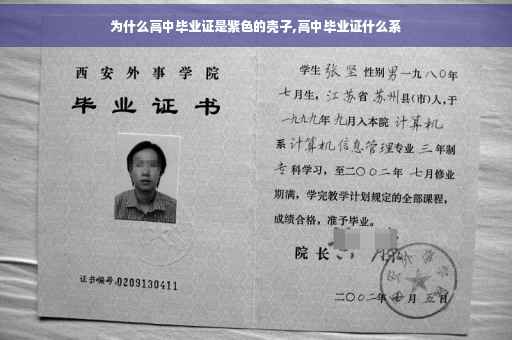 为什么高中毕业证是紫色的壳子,高中毕业证什么系
西安外事学院
毕业证书
证书编号:0209130411
学生 张坚 性别男 一九八〇年
七月生，江苏省 苏州县(市)人，于
一九九九年 九月入本院 计算机
系 计算机信息管理专业 三 年制
专 科学习，至二〇〇二年 七月修业
期满，学完教学计划规定的全部课程，
成绩合格，准予毕业。
院长
二〇〇二年 七月 五日